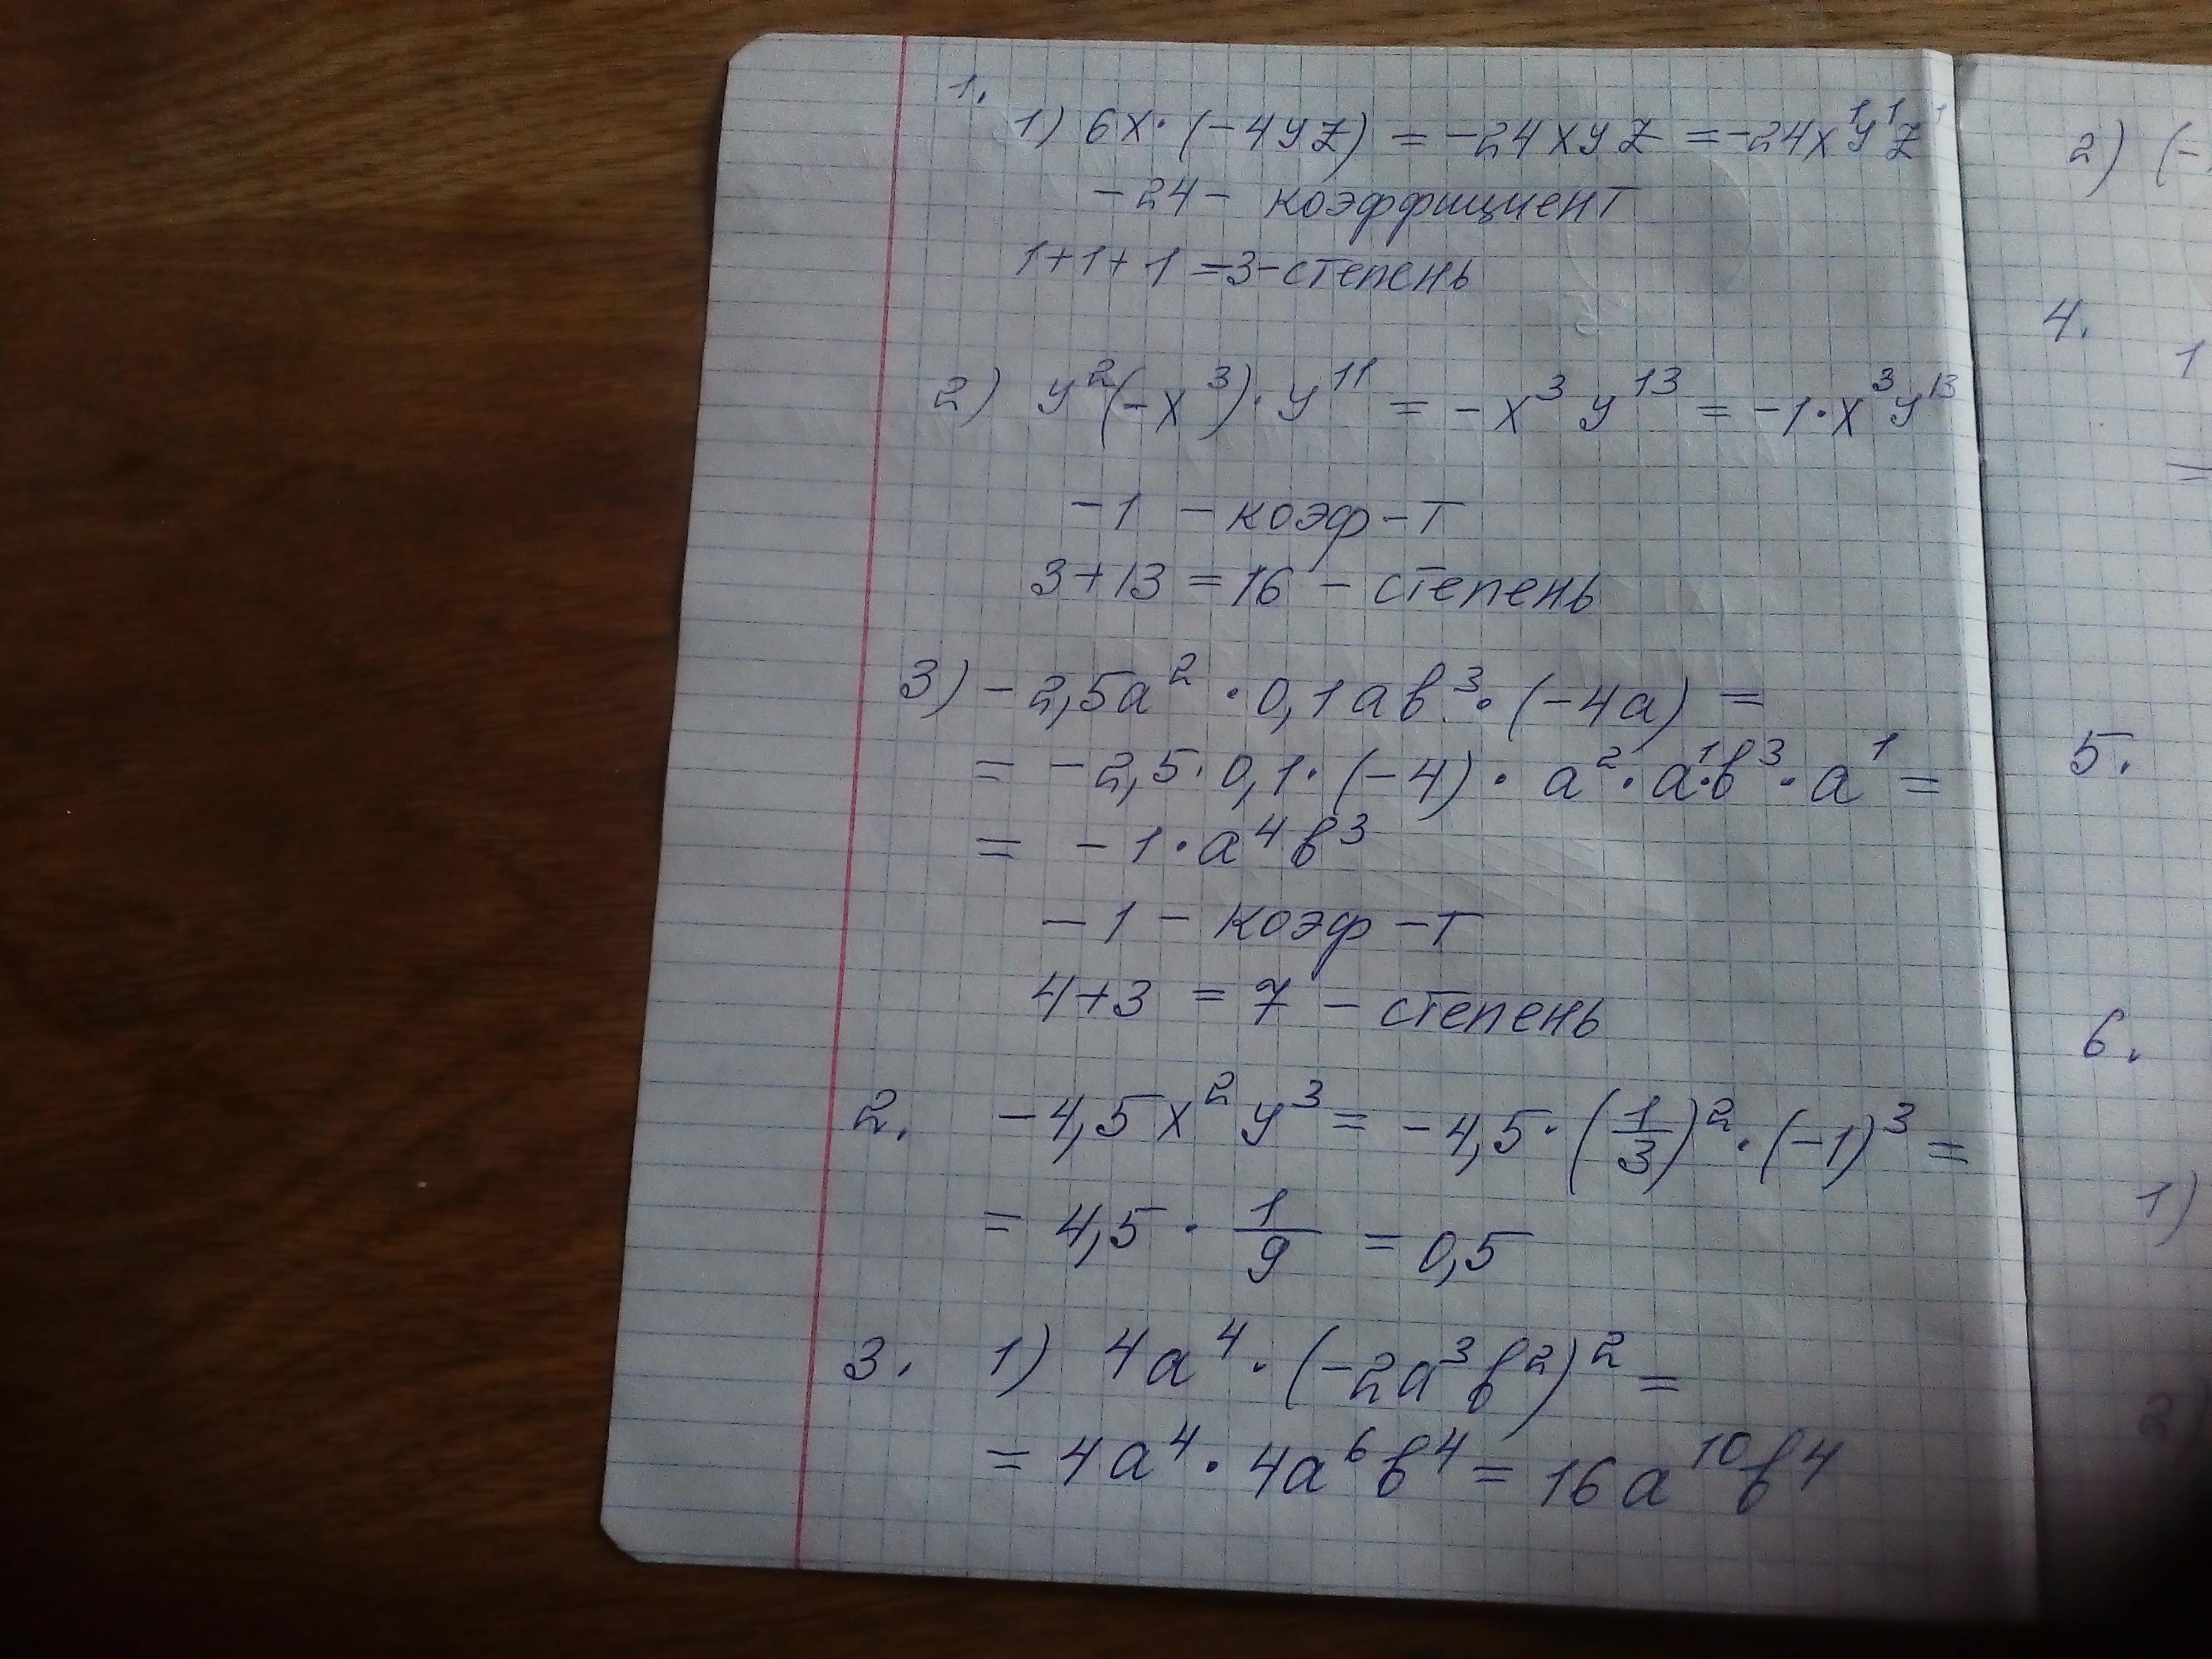 1.
1) 6x·(-4yz) = -24xyz = -24x¹y¹z¹
-24 - коэффициент
1+1+1 =3-степень
2) y²(-x³)·y¹¹ = -x³y¹³ = -1·x³y¹³
-1 - коэф-т
3+13 = 16 - степень
3) -2,5a²·0,1ab³·(-4a) =
= -2,5·0,1·(-4)·a²·a¹·b³·a¹ =
= -1·a⁴b³
-1 - коэф-т
4+3 = 7 - степень
2. -4,5x²y³ = -4,5·(1/3)²·(-1)³ =
= 4,5 · 1/9 = 0,5
3. 1) 4a⁴·(-2a³b²)² =
= 4a⁴·4a⁶b⁴ = 16a¹⁰b⁴
2) (-
4.
1
=
5.
6.
1)
2)